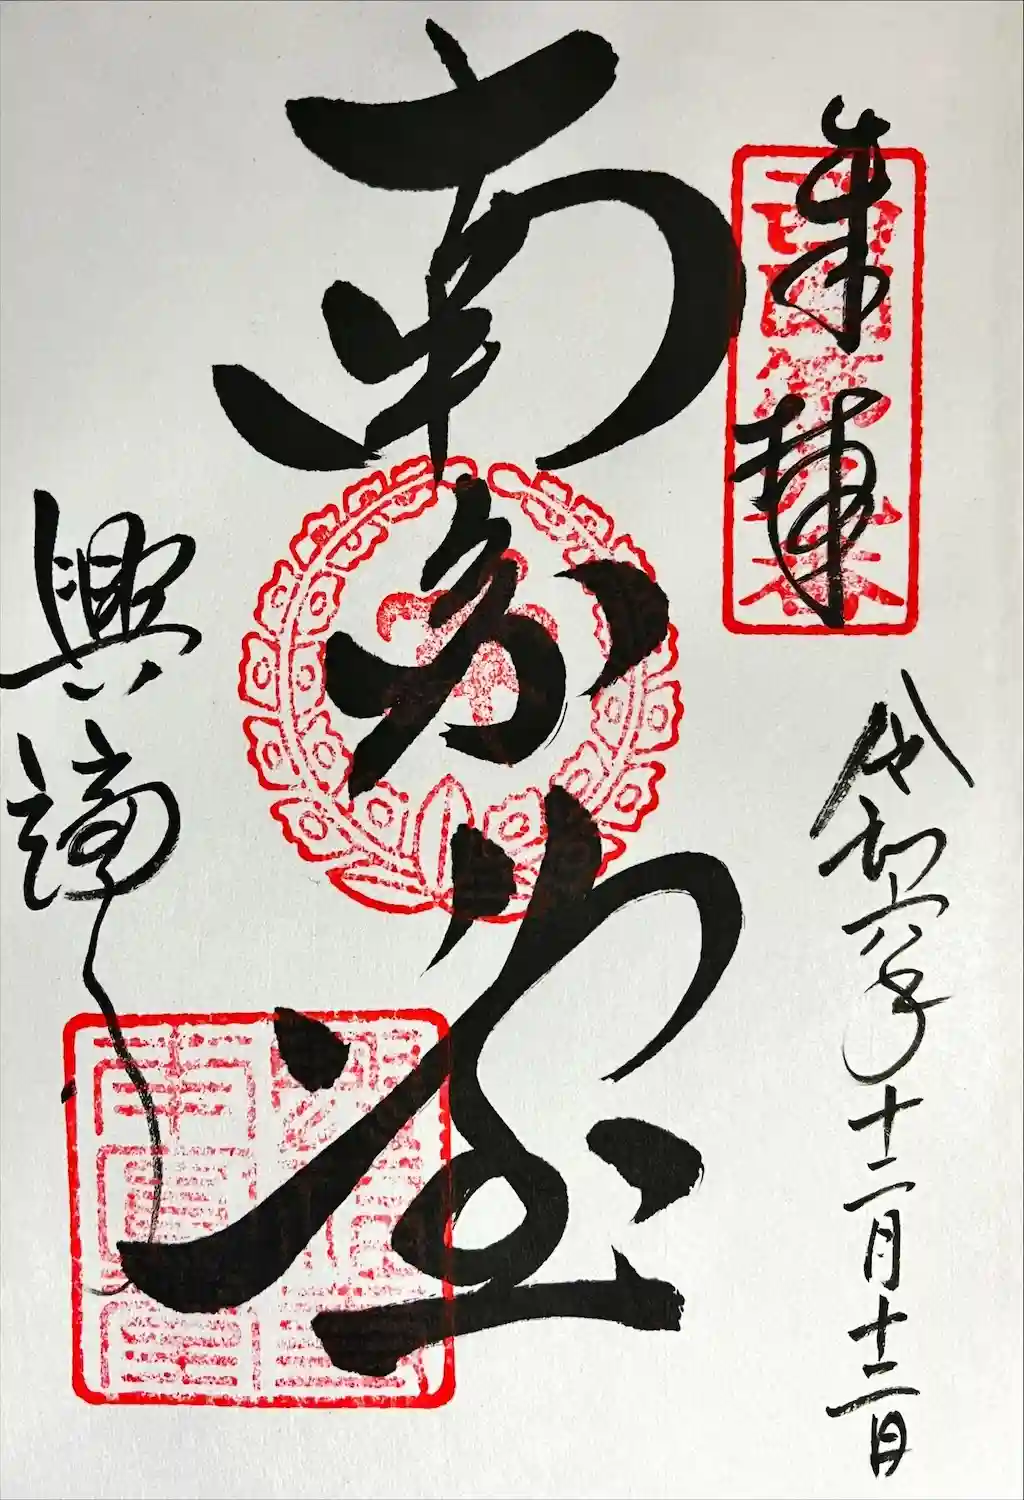 奉拝
西国第九番
令和六年十二月十二日
南円堂
興福寺